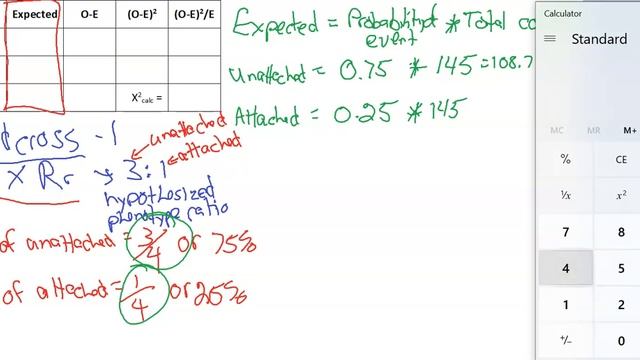 Expected O-E (O-E)² (O-E)²/E
X²calc =
Expected = Probability of event * Total
unattached = 0.75 * 145 = 108.7
Attached = 0.25 * 145
cross - 1
unattached
x Rr → 3:1
attached
hypothesized
phenotype ratio
of unattached = 3/4 or 75%
of attached = 1/4 or 25%
Calculator
Standard
MC MR M+
% CE
¹/x x²
7 8
4 5
1 2
+/- 0